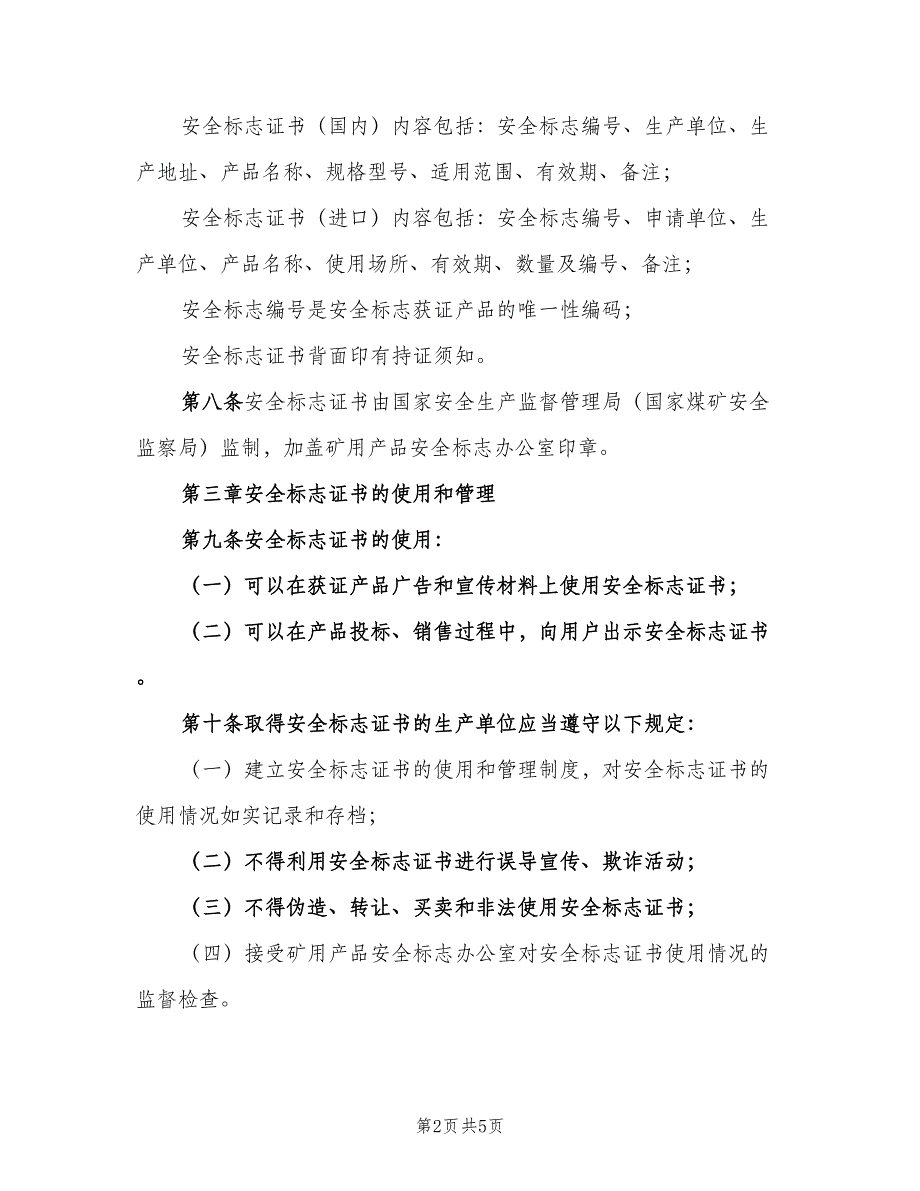 安全标志证书（国内）内容包括：安全标志编号、生产单位、生
产地址、产品名称、规格型号、适用范围、有效期、备注；
安全标志证书（进口）内容包括：安全标志编号、申请单位、生
产单位、产品名称、使用场所、有效期、数量及编号、备注；
安全标志编号是安全标志获证产品的唯一性编码；
安全标志证书背面印有持证须知。
第八条安全标志证书由国家安全生产监督管理局（国家煤矿安全
监察局）监制，加盖矿用产品安全标志办公室印章。
第三章安全标志证书的使用和管理
第九条安全标志证书的使用：
（一）可以在获证产品广告和宣传材料上使用安全标志证书；
（二）可以在产品投标、销售过程中，向用户出示安全标志证书
。
第十条取得安全标志证书的生产单位应当遵守以下规定：
（一）建立安全标志证书的使用和管理制度，对安全标志证书的
使用情况如实记录和存档；
（二）不得利用安全标志证书进行误导宣传、欺诈活动；
（三）不得伪造、转让、买卖和非法使用安全标志证书；
（四）接受矿用产品安全标志办公室对安全标志证书使用情况的
监督检查。
第2页共5页